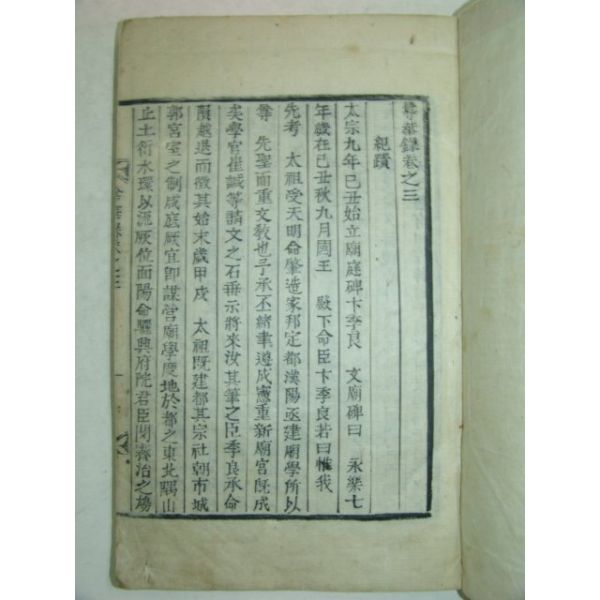 尊華錄卷之三
紀蹟
太宗九年己丑始立廟庭碑卞季良 文廟碑曰 永樂七
年歲在己丑秋九月國王 殿下命臣卞季良若曰惟我
先考 太祖受天明命肇造家邦定都漢陽亟建廟學所以
尊 先聖而重文敎也予承丕緖聿遵成憲重新廟宮旣成
矣學官崔諴等請文之石垂示將來汝其筆之臣季良承命
隕越退而徵其始末歲甲戌 太祖旣建都其宗社朝市城
郭宮室之制咸底厥宜卽謀營廟學度地於都之東北隅山
止土衍水環以流厥位面陽命驪興府院君臣閔霽治之